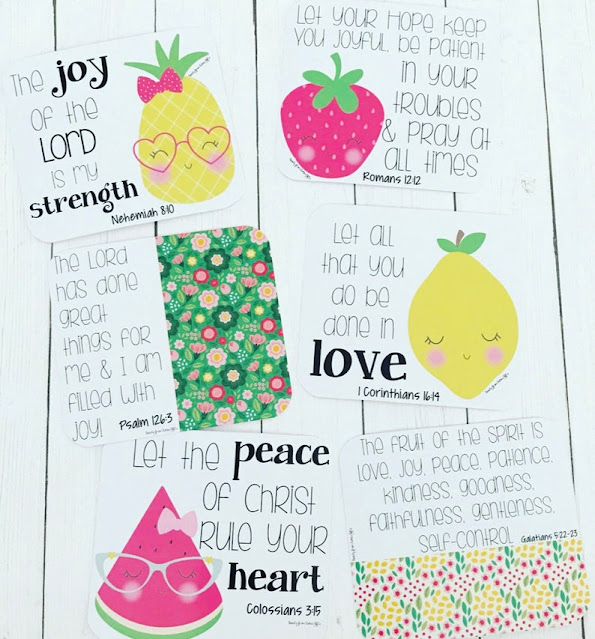 The joy
of the
LORD
is my
strength
Nehemiah 8:10
Let your Hope keep
you joyful, be patient
in your
troubles
& pray at
all times
Romans 12:12
The Lord
has done
great
things for
me & I am
filled with
joy!
Psalm 126:3
Let all
that you
do be
done in
love
1 Corinthians 16:14
Let the peace
of Christ
rule your
heart
Colossians 3:15
The fruit of the Spirit is
love, joy, peace, patience,
kindness, goodness,
faithfulness, gentleness,
self-control
Galatians 5:22-23